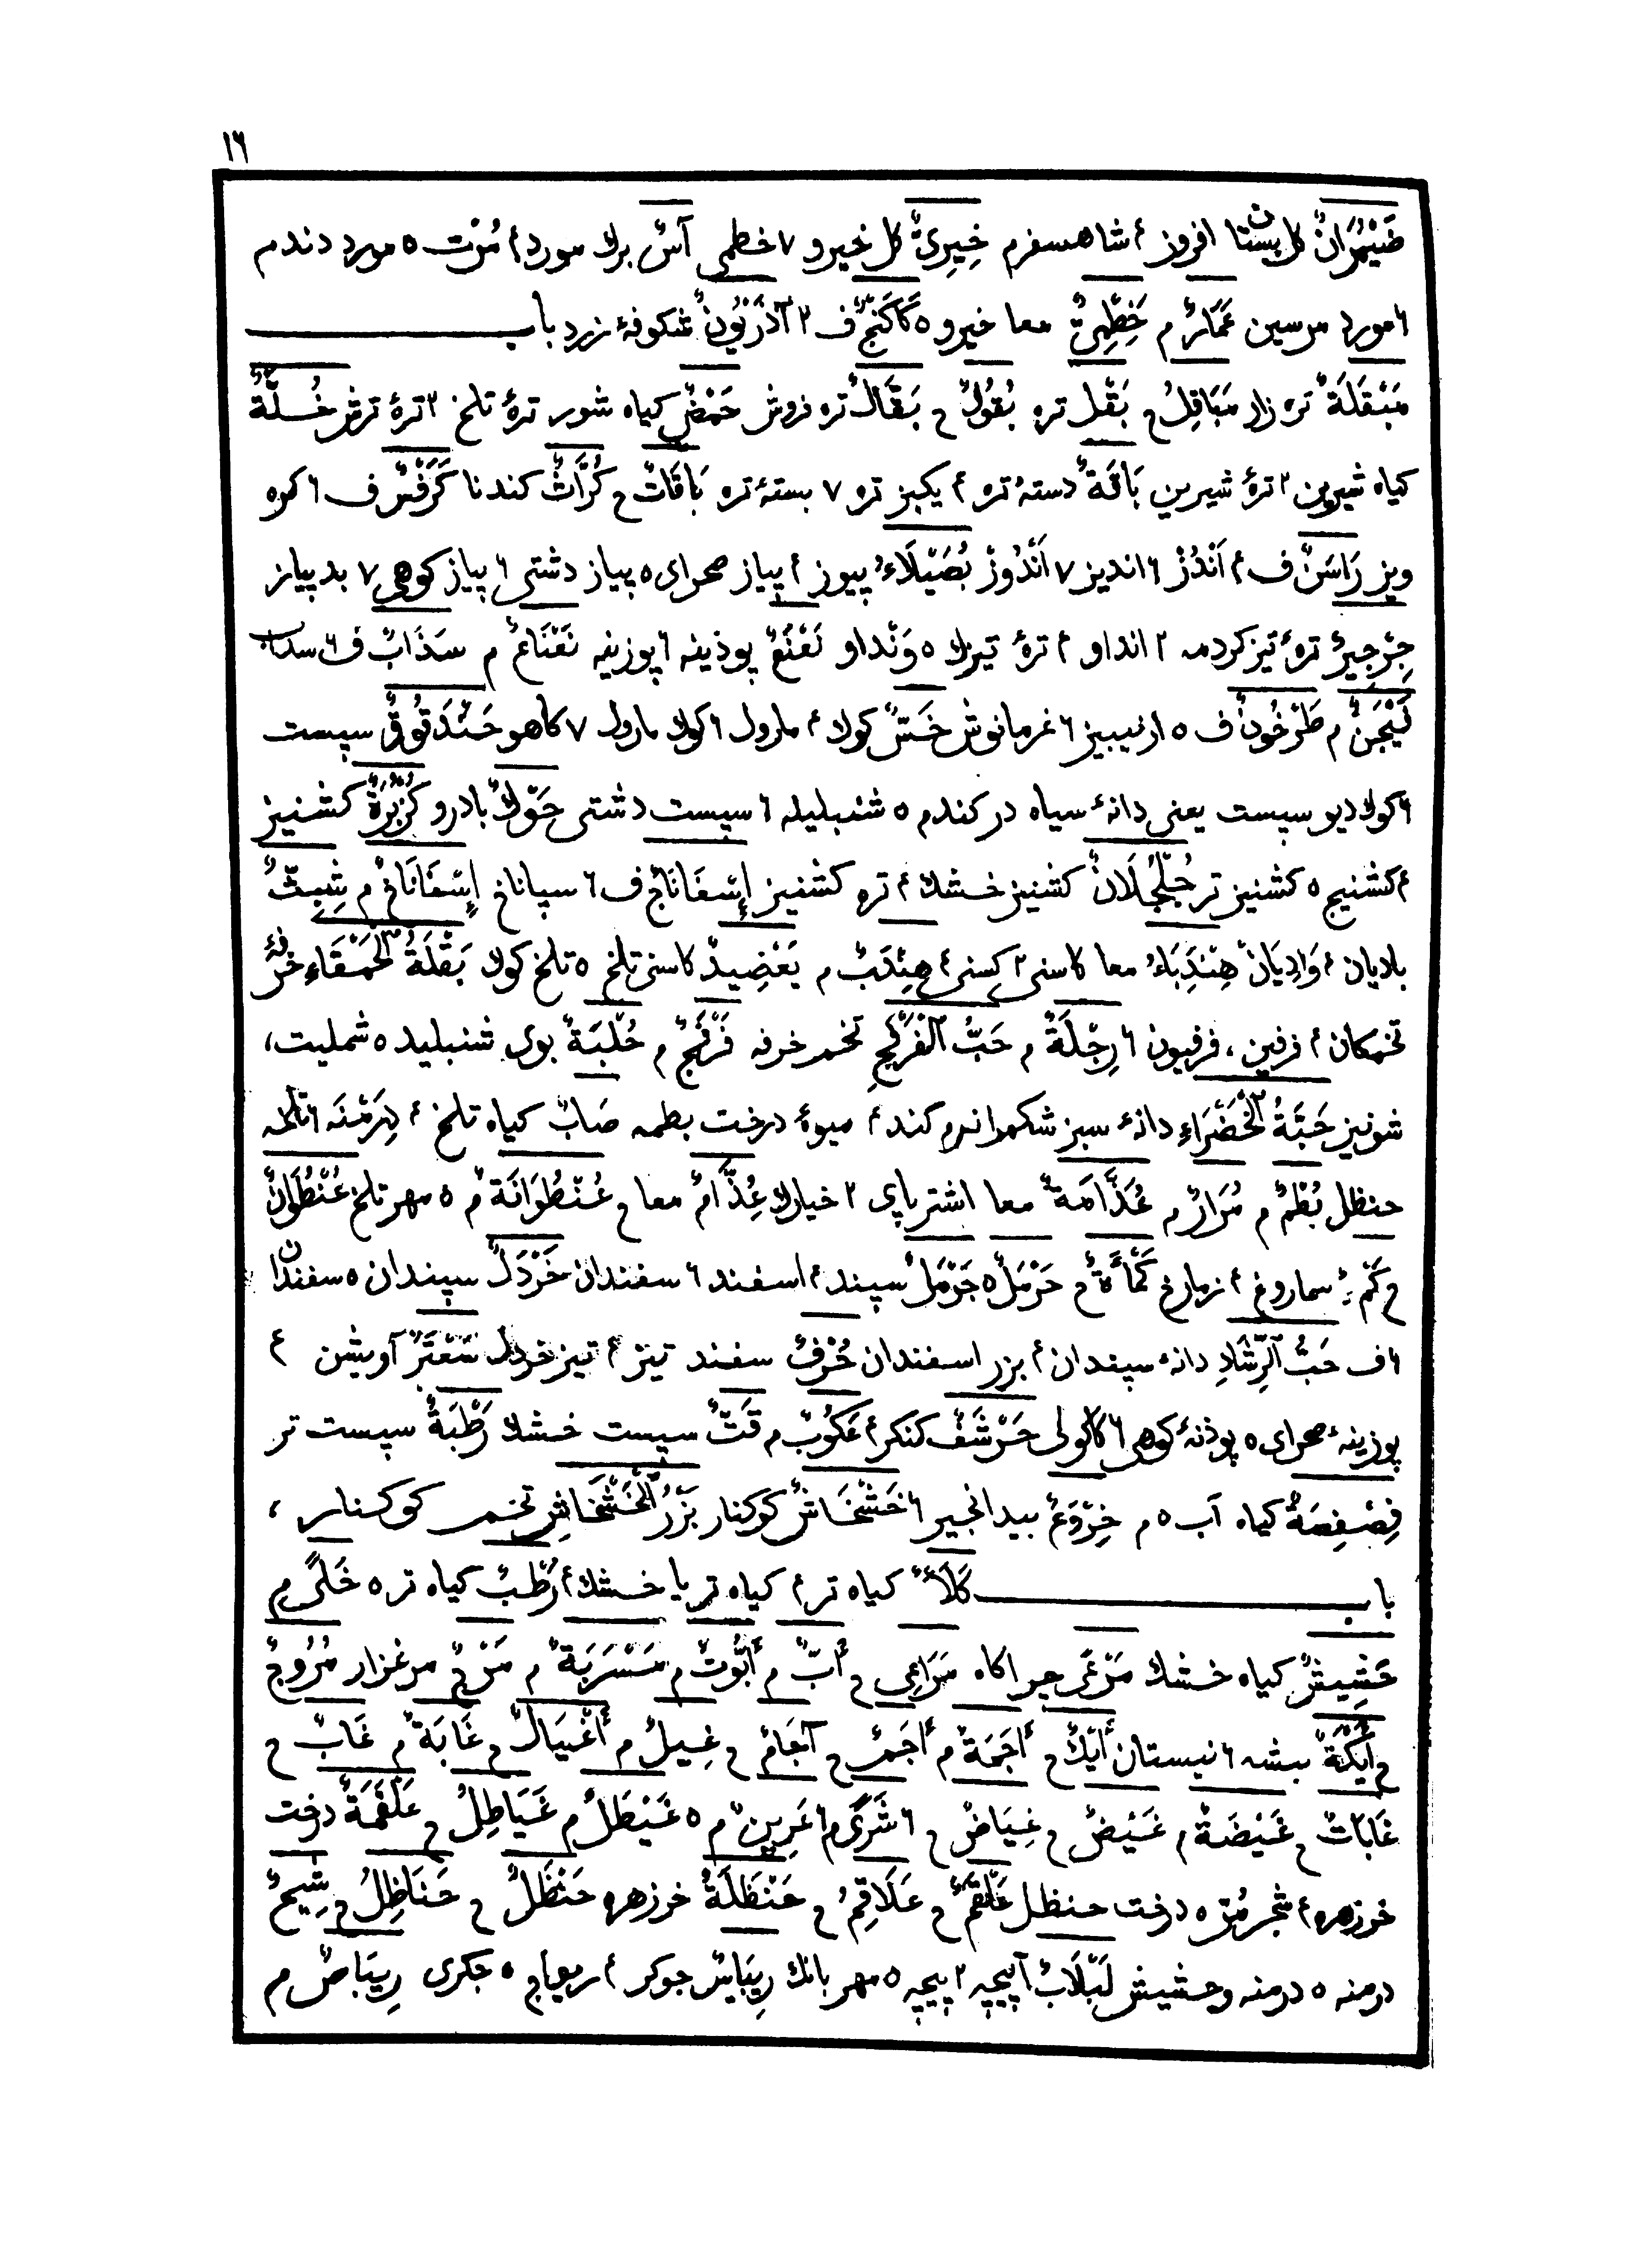 ١٦
ضَيْمُرَانٌ کل بستان افروز ۴ شاهسفرم خِيرِيٌّ کل خیرو ٧ خطمی آسٌ برك مورد ۴ مُرْت ۵ مورد دندم
۶ مورد مرسین عَمَارٌ م خَطْمِيٌّ معا خیرو ۵ كَاكَنْجٌ ف ٣ آذَرْيُونٌ شکوفهٔ زرد باب
مَبْقَلَةٌ تره زار مَبَاقِلُ ج بَقْل تره بُقُولٌ ج بَقَّالٌ تره فروش حَمْضٌ کیاه شور ترهٔ تلخ ٣ ترهٔ ترش خُلَّةٌ
کیاه شیرین ٢ ترهٔ شیرین بَاقَةٌ دستهٔ تره ۴ یکبز تره ٧ بستهٔ تره بَاقَاتٌ ج كُرَّاثٌ کندنا كَرَفْسٌ ف ۶ کوه
ویز رَاسَنٌ ف ۴ اَنْدُزْ ۶ اندیز ٧ اَنْدُوزْ بُصَيْلَاءُ پیوز ۴ پیاز صحرای ۵ پیاز دشتی ۶ پیاز کوهی ٧ بد پیاز
جِرْجِيرٌ ترهٔ تیز کردمه ٢ انداو ۴ ترهٔ تیرك ۵ وَنْداو نَعْنَعٌ پوذینه ۶ پوزینه نَعْنَاعٌ م سَذَابٌ ف ۶ سداب
فَيْجَنٌ م طَرْخُونٌ ف ۵ ارنیبیز ۶ غرمانوش خَسٌّ کوك ۴ مارول ۶ کوك مارول ٧ کاهو حَنْدَقُوقٌ سپست
۶ کوك دیو سپست یعنی دانهٔ سیاه در کندم ۵ شنبلیله ۶ سپست دشتی حَوْكٌ بادرو كُزْبُرَةٌ کشنیز
۴ کشنیج ۵ کشنیز تر جُلْجُلَانٌ کشنیز خشك ۴ تره کشنیز إِسْفَانَاجٌ ف ۶ سپاناخ إِسْفَانَاخٌ م شِبِثٌّ
بادیان ۴ وَادِیَانْ هِنْدِبَاءُ معا کاسنی ٢ کِسنی ۴ هِنْدَبٌ م يَعْضِيدٌ کاسنی تلخ ۵ تلخ کوك بَقْلَةُ ٱلْحَمْقَاءِ خُرفهٔ
تخمکان ۴ فرفین، فرفیون ۶ رِجْلَةٌ م حَبُّ ٱلْفَرْفَجِ تخم خرفه فَرْفَجٌ م حُلْبَةٌ بوی شنبلید ۵ شملیت،
شونیز حَبَّةُ ٱلْخَضْرَاءِ دانهٔ سبز شکم را نرم کند ۴ میوهٔ درخت بطمه صَابٌ کیاه تلخ ۴ دِرَمْنَه ۶
حنظل بُطْمٌ م مُرَارٌ م عُذَّامَةٌ معا اشتر پای ٢ خیارك عُذَّامٌ معا ج عُنْظُوَانَةٌ م ۵ مهر تلخ عُنْظُوَانٌ
ج كَمْءٌ سماروغ ۴ زمارخ كَمْأَةٌ ج حَرْمَلٌ ۵ جَرْمَلْ سپند ۴ اسفند ۶ سفندان خَرْدَلٌ سپندان ۵ سفندان
۶ ف حَبُّ ٱلرَّشَادِ دانهٔ سپندان ۴ بزر اسفندان حُرْفٌ سفند تیز ۴ تیز خردل سَعْتَرٌ آویشن ۴
پوزینهٔ صحرای ۵ پوذنهٔ کوهی ۶ کاکولی حَرْشَفٌ کنکر ۴ عَكُّوبٌ م قَتٌّ سپست خشك رَطْبَةٌ سپست تر
فِصْفِصَةٌ کیاه آب ۵ م خِرْوَعٌ بیدانجیر ۶ خَشْخَاشٌ کوکنار بَزْرُ ٱلْخَشْخَاشِ تخم کوکنار،
باب كَلَأٌ کیاه تر ۴ کیاه تر یا خشك ۴ رُطْبٌ کیاه تر ۵ خَلًى م
حَشِيشٌ کیاه خشك مَرْعًى چراکاه مَرَاعِي ج أَبٌّ م أُبُوتٌ م مَسْرَبَةٌ م مَرْجٌ مرغزار مُرُوجٌ
ج أَيْكَةٌ بیشه ۶ نیستان أَيْكٌ ج أَجَمَةٌ م أَجَمٌ ج آجَامٌ ج غِيلٌ م أَغْيَالٌ ج غَابَةٌ م غَابٌ ج
غَابَاتٌ ج غَيْضَةٌ م غَيْضٌ ج غِيَاضٌ ج ۶ شَرًى م ۶ عَرِينٌ م ۵ غَيْطَلٌ م غَيَاطِلُ ج عَلْقَمَةٌ درخت
خرزهره ۴ شجر مُرّ ۵ درخت حنظل عَلْقَمٌ ج عَلَاقِمُ ج حَنْظَلَةٌ خرزهره حَنْظَلٌ ج حَنَاظِلُ ج شِيحٌ
درمنه ۵ درمنه وحشیش لَبْلَابٌ آپیچه ٢ پیچه ۵ مهربانك رِيبَاسٌ جوکر ۴ ریواج ۵ جکری رِيبَاصٌ م